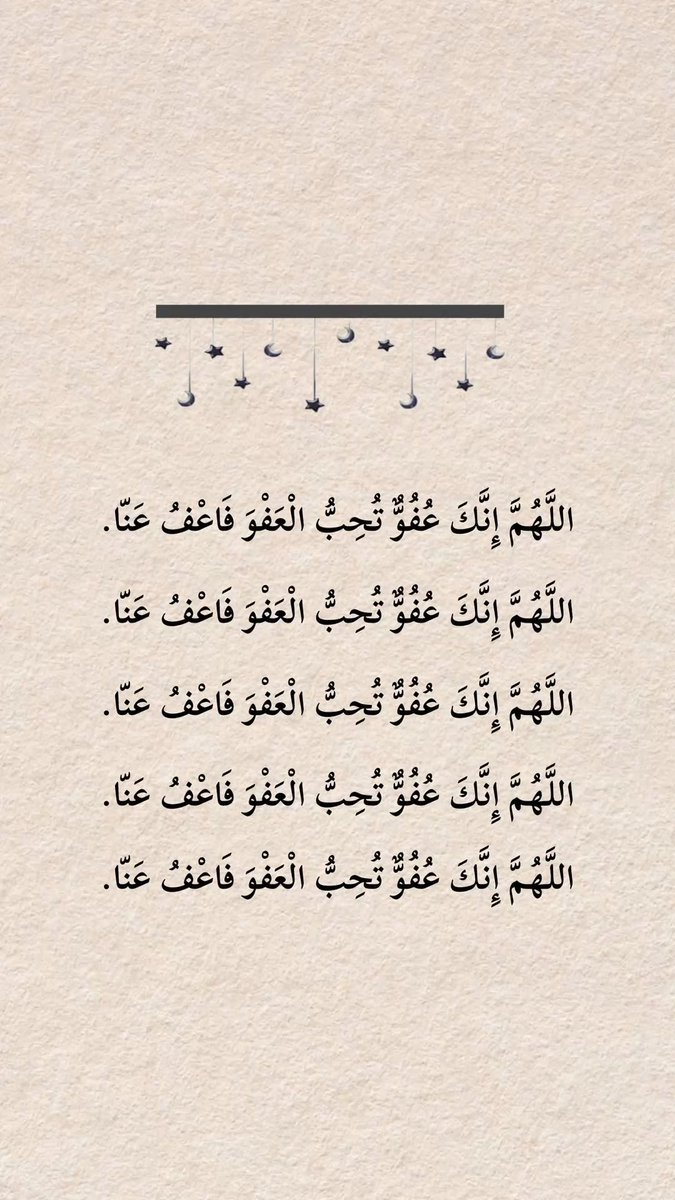 اللَّهُمَّ إِنَّكَ عُفُوٌّ تُحِبُّ الْعَفْوَ فَاعْفُ عَنّا.
اللَّهُمَّ إِنَّكَ عُفُوٌّ تُحِبُّ الْعَفْوَ فَاعْفُ عَنّا.
اللَّهُمَّ إِنَّكَ عُفُوٌّ تُحِبُّ الْعَفْوَ فَاعْفُ عَنّا.
اللَّهُمَّ إِنَّكَ عُفُوٌّ تُحِبُّ الْعَفْوَ فَاعْفُ عَنّا.
اللَّهُمَّ إِنَّكَ عُفُوٌّ تُحِبُّ الْعَفْوَ فَاعْفُ عَنّا.